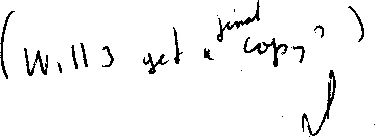 (Will 3 get a final copy?)